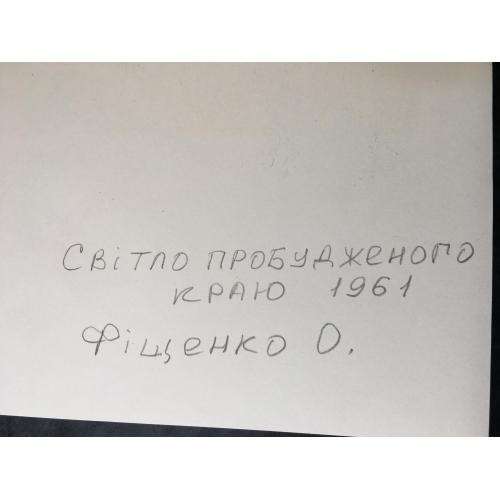 СВІТЛО ПРОБУДЖЕНОГО
КРАЮ 1961
Фіщенко О.